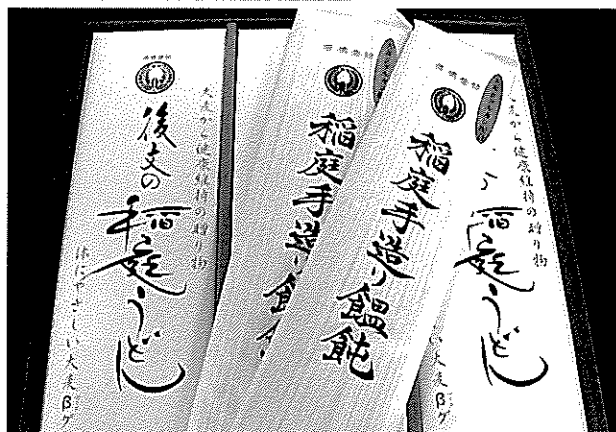 大麦から健康維持の贈り物
後文の
稲庭うどん
体にやさしい大麦βグ
稲庭手造り饂飩
稲庭手造り饂飩
麦から健康維持の贈り物
稲庭うどん
い大麦βグ